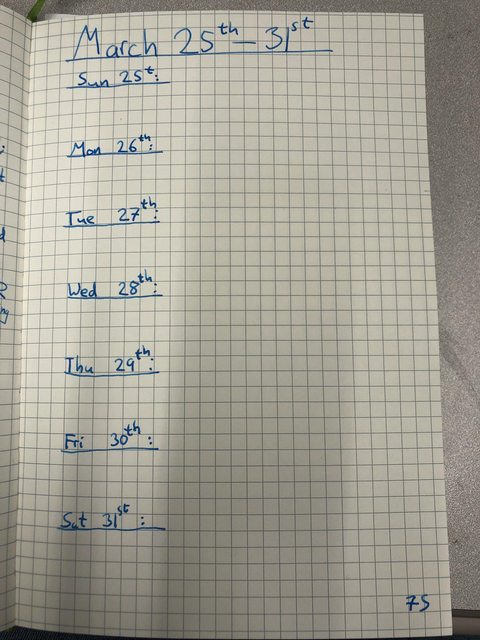 March 25th - 31st
Sun 25t:
Mon 26th:
Tue 27th:
Wed 28th:
Thu 29th:
Fri 30th:
Sat 31st:
75